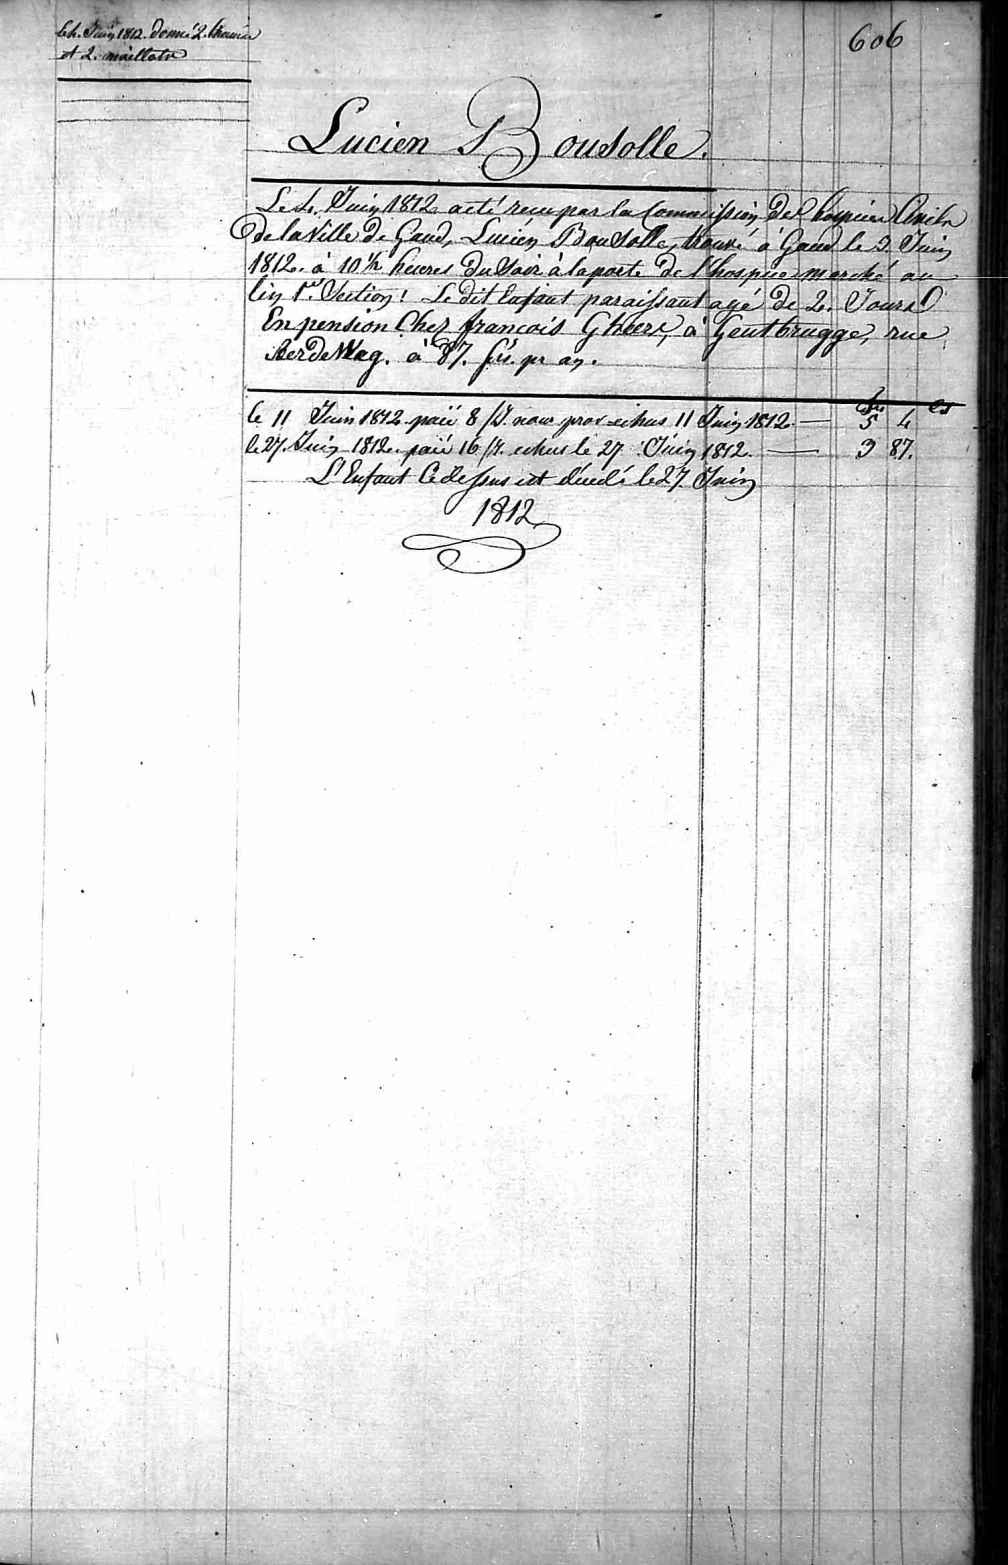 Le 4. Juin 1812. donné 2. chemises
et 2. maillots
606
Lucien Bousolle.
Le 4. Juin 1812 a eté recu par la Commission des hospices Civils
de la Ville de Gand, Lucien Bousolle, trouvé à Gand le 3. Juin
1812. à 10½ heures du Soir à la porte de l'hospice marché au
lin 1re. Section! Le dit Enfant paraissant agé de 2. Jours
En pension Chez francois Gheers, à Gentbrugge, rue
à 87. frs. pr an.
frs cs
le 11 Juin 1812 paié 8 echus 11 Juin 1812 — 5 4
le 27. Juin 1812. paié 16 echus le 27 Juin 1812. — 3 87.
L'Enfant Cidessus est décédé le 27 Juin
1812